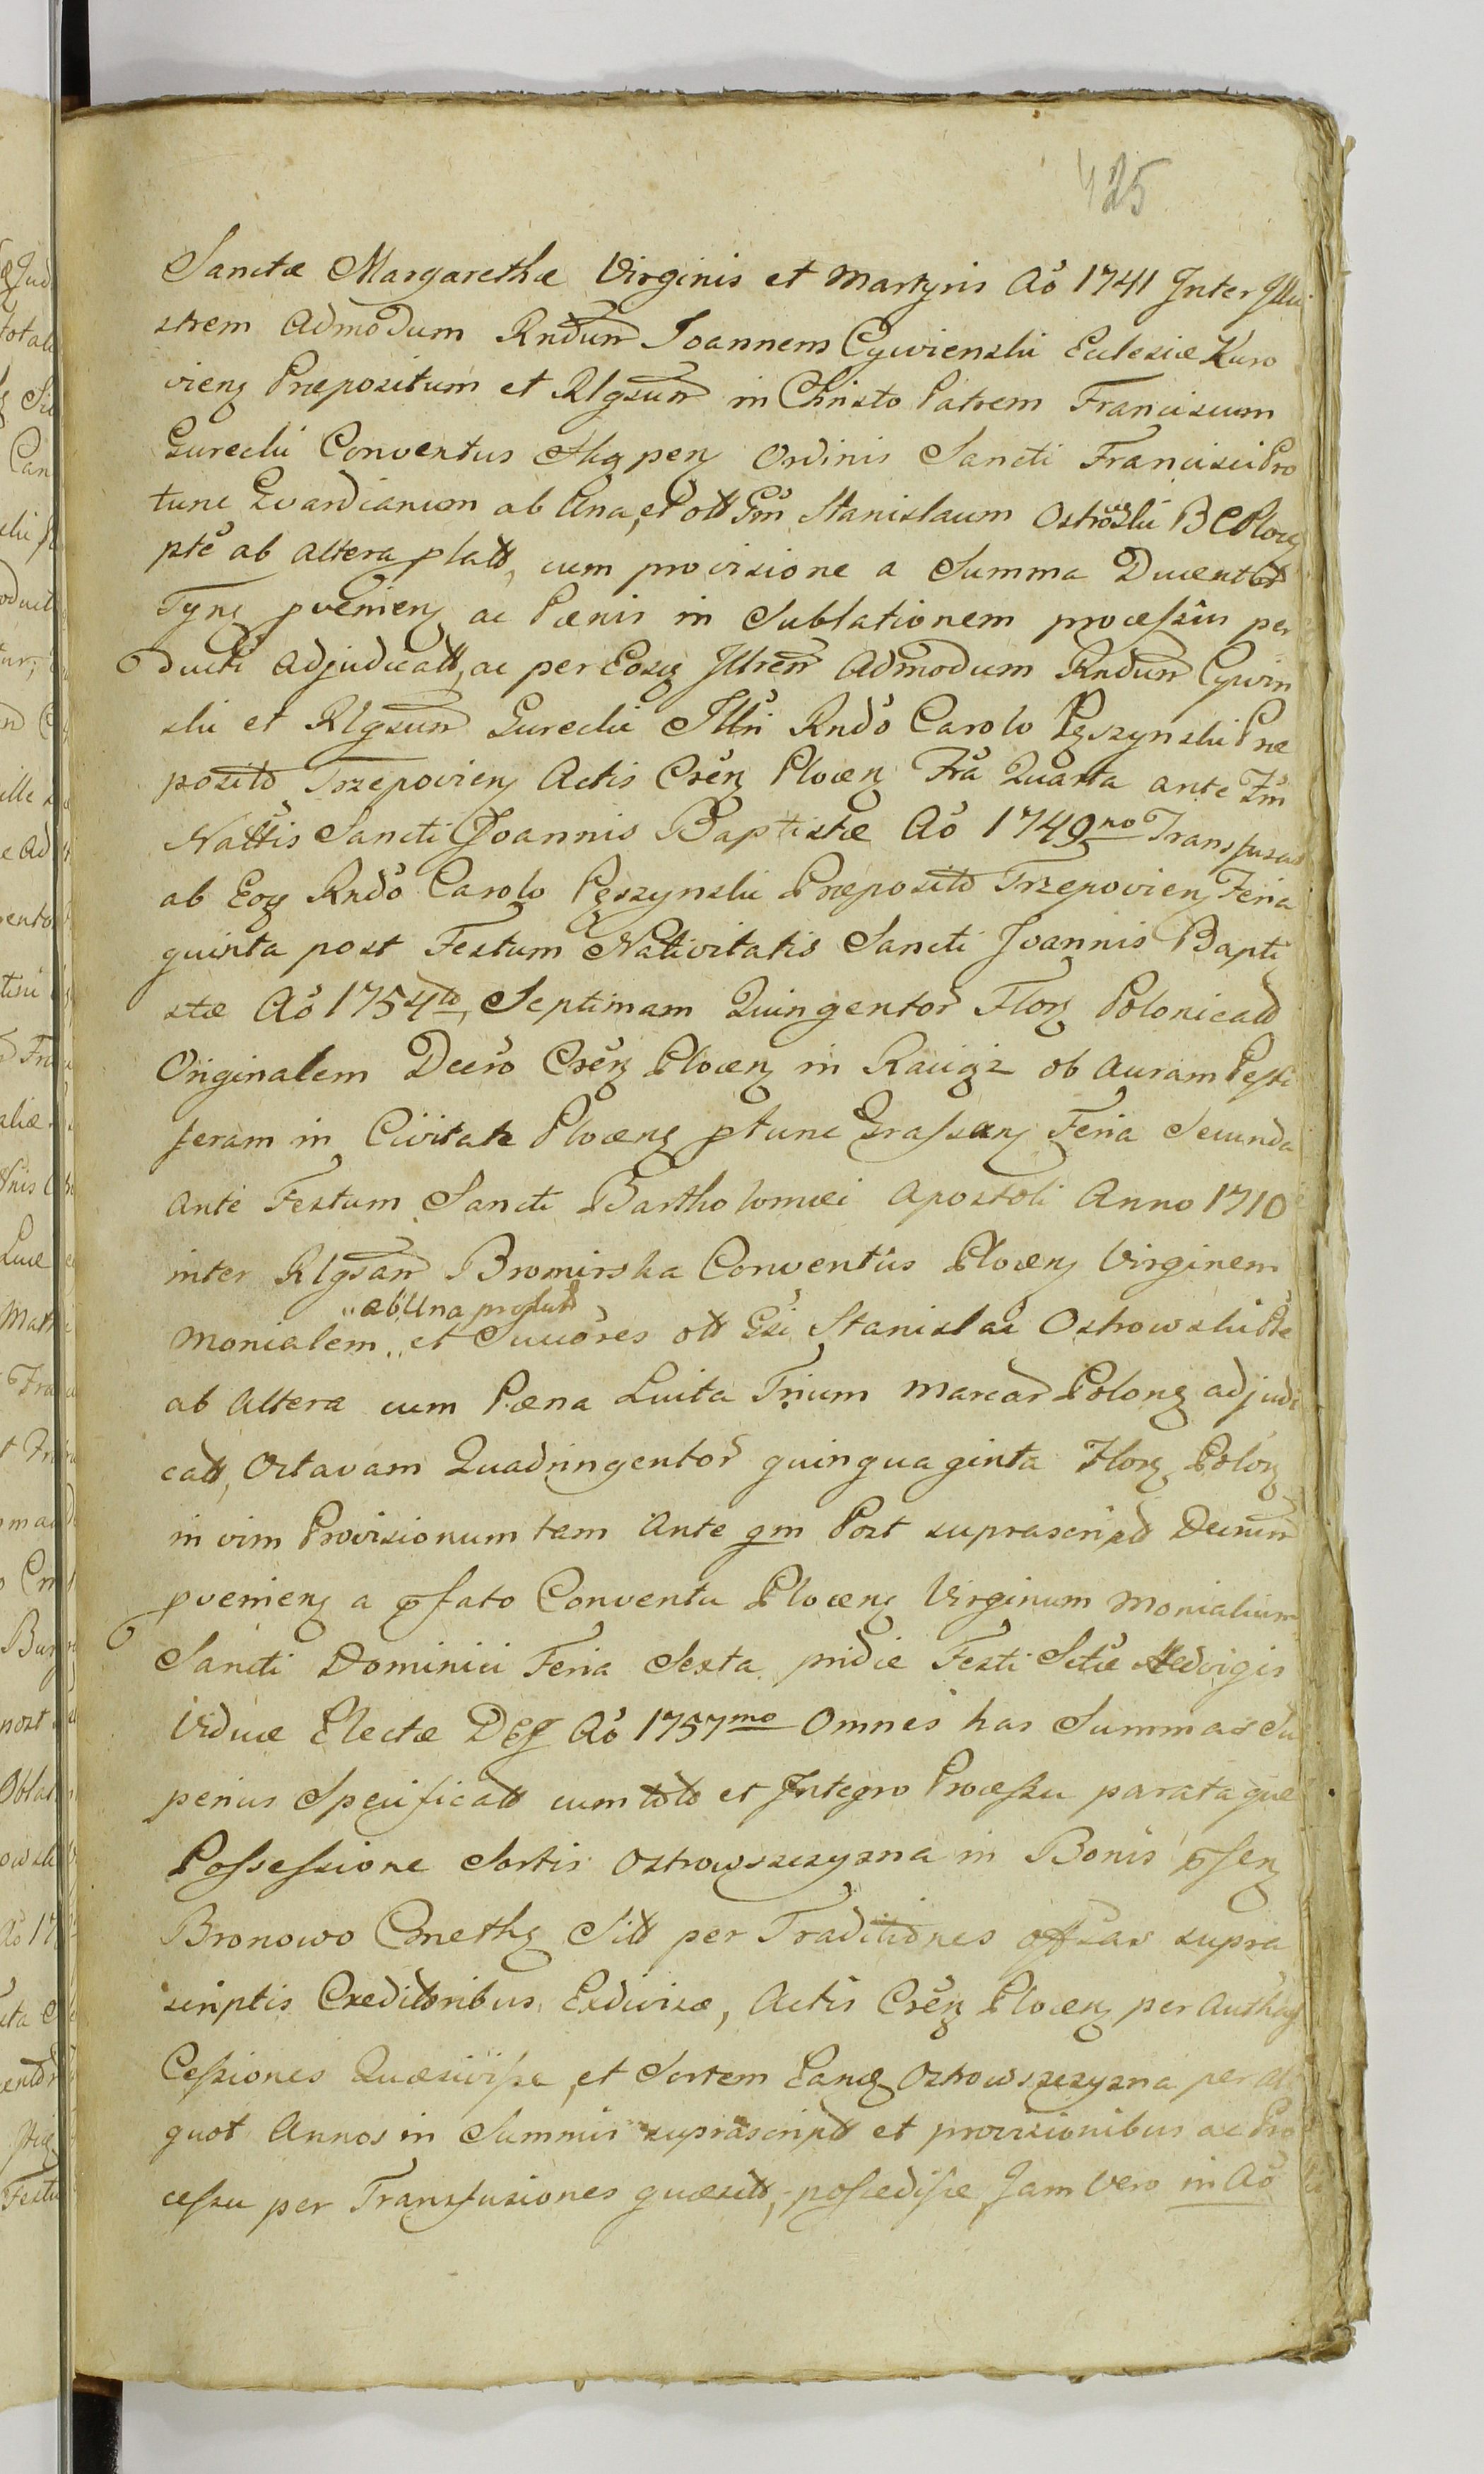 425
Sanctæ Margarethæ Virginis et Martyris Aõ 1741 Inter Illu
strem Admodum Rndum Joannem Cywienski Ecclesiæ Kuro
vienꝫ Præpositum et Rlgsum in Christo Patrem Franciscum
Gurecki Conventus Skępenꝫ Ordinis Sancti Francisci Pro
tunc Gvardianum ab Una, et ott Gm̃ Stanislaum Ostrowski BCPlocꝫ
pte ab altera platt, cum provisione a Summa Ducentor
Tynꝫ pvenienꝫ ac Pænis in Sublationem processûs per
ducti Adjudicatt, ac per Eosꝫ Illrem Admodum Rndum Cywin
ski et Rlgsum Gurecki Illri Rndo Carolo Pęszynski Præ
posito Trzepovienꝫ Actis Crẽnꝫ Plocenꝫ Fra Quarta ante Fm̃
Nattis Sancti Joannis Baptistæ Aõ 1749no Transfusam
ab Eoꝫ Rndo Carolo Pęszynski Præposito Trzepovienꝫ Feria
quinta post Festum Nativitatis Sancti Joannis Bapti
stæ Aõ 1754to, Septimam Quingentor Florꝫ Polonicatt
Originalem Decro Crẽnꝫ Plocenꝫ in Raciąż ob Auram Pesti
feram in Civitate Plocenꝫ ptunc Grassanꝫ Feria Secunda
Ante Festum Sancti Bartholomæi Apostoli Anno 1710
inter Rlgsam Bromirska Conventûs Plocenꝫ Virginem
ab Una
Monialem et Succores ott Gsi Stanislai Ostrowski Pte
ab Altera cum Pæna Luita Trium Marcar Polonꝫ adjudi
catt, Octavam Quadringentor quinquaginta Florꝫ Polonꝫ
in vim Provisionum tam Ante qm Post suprascript Decrum
pvenienꝫ a pfato Conventu Plocenꝫ Virginum Monialium
Sancti Dominici Feria Sexta pridie Festi Sctæ Hedvigis
Viduæ Electæ Aõ 1757mo Omnes has Summas Su
perius Specificatt cum toto et Integro Processu parataque
Possessione Sortis Ostrowszczyzna in Bonis psenꝫ
Bronowo Kmethꝫ Sitt per Traditiones offsas supra
scriptis Creditoribus Exdivisæ, Actis Crẽnꝫ Plocenꝫ per
Cessiones Quæsivisse, et Sortem Eanꝫ Ostrowszczyzna per ali
quot Annos in Summis suprascript et provisionibus ac Pro
cessu per Transfusiones quæsitt, possedisse Jam Vero in Aõ